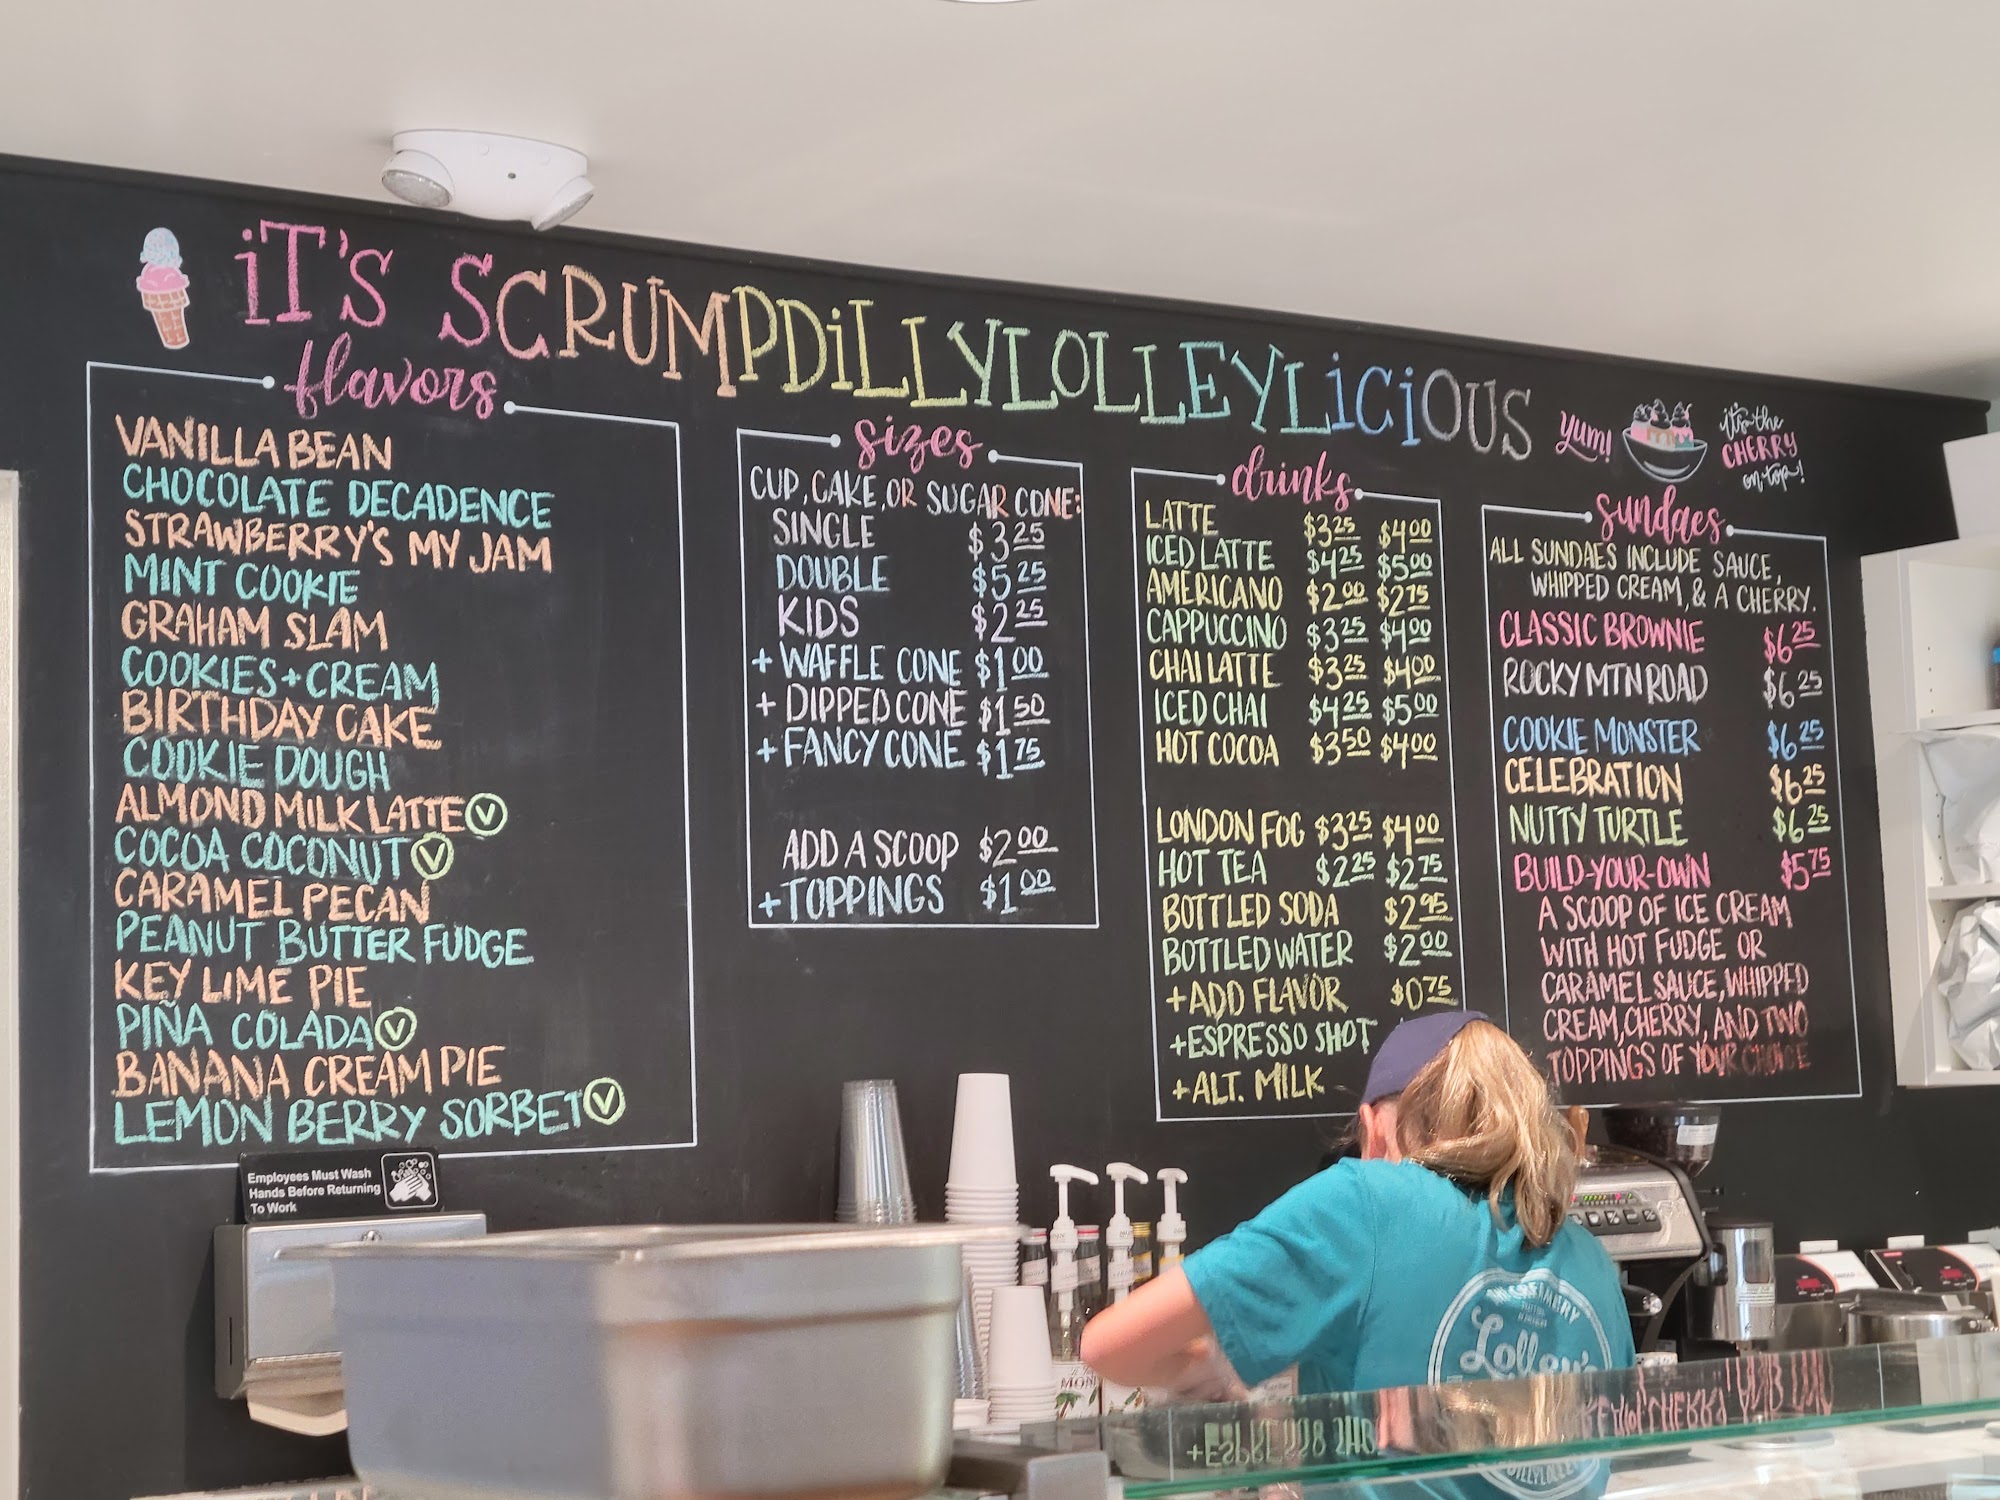 iT'S SCRUMPDiLLYLOLLEYLiCiOUS
flavors
VANILLA BEAN
CHOCOLATE DECADENCE
STRAWBERRY'S MY JAM
MINT COOKIE
GRAHAM SLAM
COOKIES + CREAM
BIRTHDAY CAKE
COOKIE DOUGH
ALMOND MILK LATTE V
COCOA COCONUT V
CARAMEL PECAN
PEANUT BUTTER FUDGE
KEY LIME PIE
PIÑA COLADA V
BANANA CREAM PIE
LEMON BERRY SORBET V
sizes
CUP, CAKE, OR SUGAR CONE:
SINGLE $3.25
DOUBLE $5.25
KIDS $2.25
+ WAFFLE CONE $1.00
+ DIPPED CONE $1.50
+ FANCY CONE $1.75
ADD A SCOOP $2.00
+ TOPPINGS $1.00
drinks
LATTE $3.25 $4.00
ICED LATTE $4.25 $5.00
AMERICANO $2.00 $2.75
CAPPUCCINO $3.25 $4.00
CHAI LATTE $3.25 $4.00
ICED CHAI $4.25 $5.00
HOT COCOA $3.50 $4.00
LONDON FOG $3.25 $4.00
HOT TEA $2.25 $2.75
BOTTLED SODA $2.95
BOTTLED WATER $2.00
+ ADD FLAVOR $0.75
+ ESPRESSO SHOT
+ ALT. MILK
yum!
it's the
CHERRY
on top!
sundaes
ALL SUNDAES INCLUDE SAUCE,
WHIPPED CREAM, & A CHERRY.
CLASSIC BROWNIE $6.25
ROCKY MTN ROAD $6.25
COOKIE MONSTER $6.25
CELEBRATION $6.25
NUTTY TURTLE $6.25
BUILD-YOUR-OWN $5.75
A SCOOP OF ICE CREAM
WITH HOT FUDGE OR
CARAMEL SAUCE, WHIPPED
CREAM, CHERRY, AND TWO
TOPPINGS OF YOUR CHOICE
Employees Must Wash
Hands Before Returning
To Work
CREAMERY
Lolley's